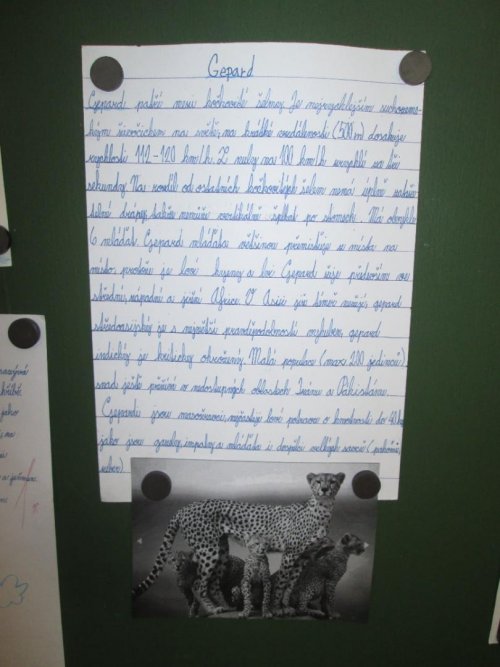 Gepard
Gepardi patří mezi kočkovité šelmy. Je nejrychlejším suchozem-
ským živočichem na světě, na krátké vzdálenosti (500 m) dosahuje
rychlosti 112-120 km/h. Z nuly na 100 km/h zrychlí za tři
sekundy. Na rozdíl od ostatních kočkovitých šelem nemá úplně zataži-
telné drápy, takže nemůže vertikálně šplhat po stromech. Má obvykle
6 mláďat. Gepard mláďata většinou přemisťuje z místa na
místo, protože je loví hyeny a lvi. Gepard žije především ve
střední, západní a jižní Africe. V Asii již téměř nežijí, gepard
středoasijský je s největší pravděpodobností vyhuben, gepard
indický je kriticky ohrožený. Malá populace (max. 200 jedinců)
snad ještě přežívá v nedostupných oblastech Íránu a Pákistánu.
Gepardi jsou masožravci, nejčastěji loví potravu o hmotnosti do 40 kg
jako jsou gazely, impaly a mláďata i dospělce velkých savců ( pakoňů,
zeber)